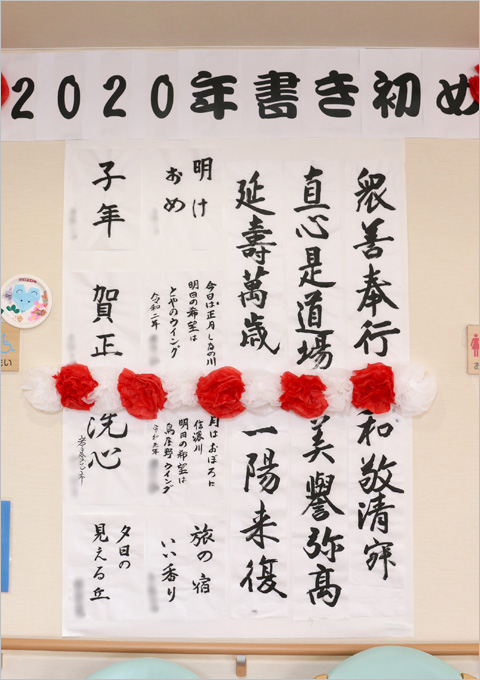 2020年書き初め
衆善奉行
和敬清寂
直心是道場
美譽弥高
延壽萬歳
一陽来復
明け
おめ
今日は正月しなの川
明日の希望は
とやのウイング
令和二年
月はおぼろに
信濃川
明日の希望は
鳥屋野ウイング
旅の宿
いい香り
子年
賀正
洗心
夕日の
見える丘